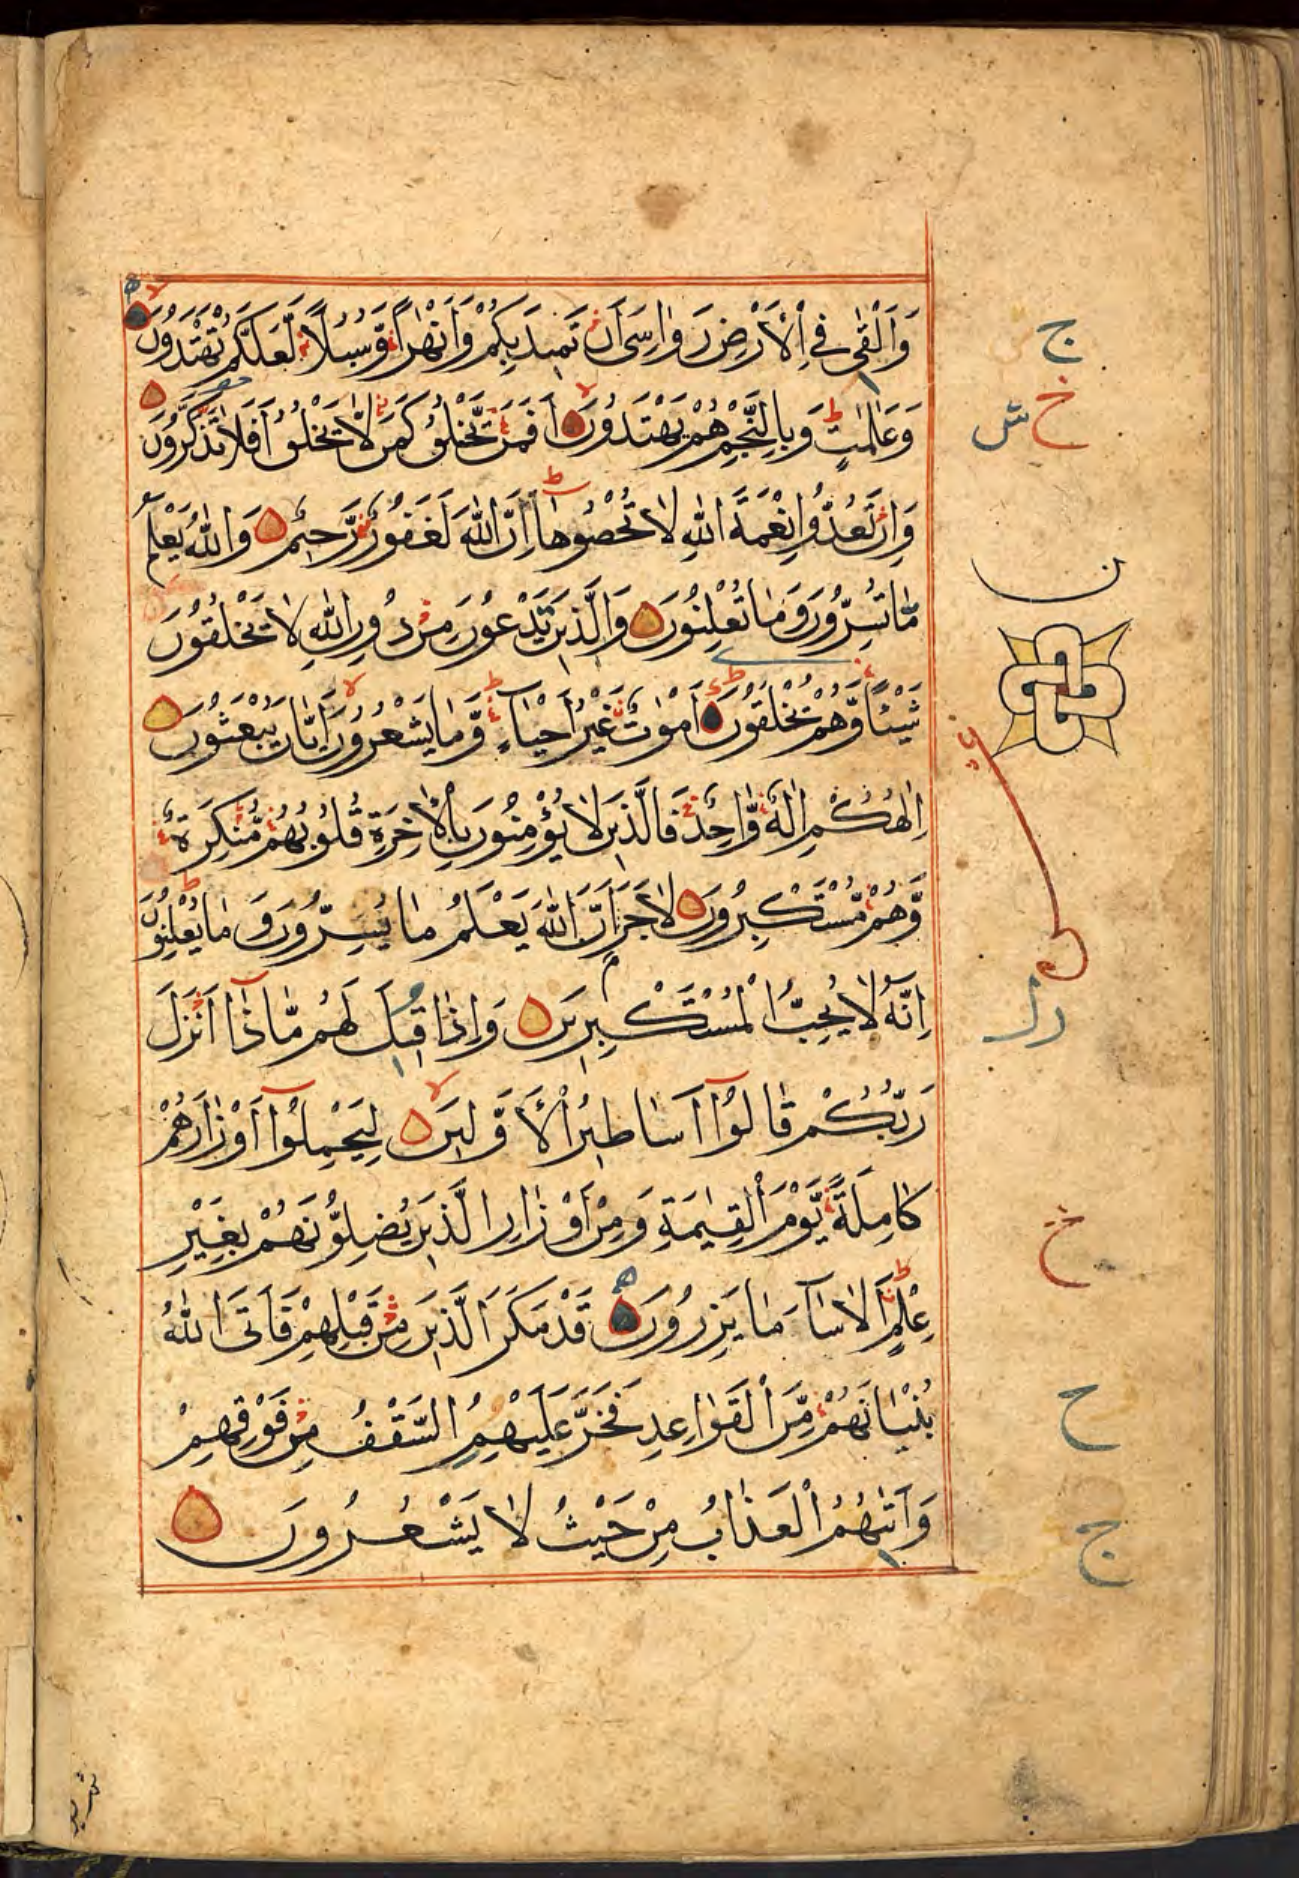 وَاَلْقٰى فِى الْاَرْضِ رَوَاسِىَ اَنْ تَمِيْدَ بِكُمْ وَاَنْهٰرًا وَّسُبُلًا لَّعَلَّكُمْ تَهْتَدُوْنَ
وَعَلٰمٰتٍ وَبِالنَّجْمِ هُمْ يَهْتَدُوْنَ اَفَمَنْ يَّخْلُقُ كَمَنْ لَّا يَخْلُقُ اَفَلَا تَذَكَّرُوْنَ
وَاِنْ تَعُدُّوْا نِعْمَةَ اللّٰهِ لَا تُحْصُوْهَا اِنَّ اللّٰهَ لَغَفُوْرٌ رَّحِيْمٌ وَاللّٰهُ يَعْلَمُ
مَا تُسِرُّوْنَ وَمَا تُعْلِنُوْنَ وَالَّذِيْنَ يَدْعُوْنَ مِنْ دُوْنِ اللّٰهِ لَا يَخْلُقُوْنَ
شَيْئًا وَّهُمْ يُخْلَقُوْنَ اَمْوَاتٌ غَيْرُ اَحْيَآءٍ وَّمَا يَشْعُرُوْنَ اَيَّانَ يُبْعَثُوْنَ
اِلٰهُكُمْ اِلٰهٌ وَّاحِدٌ فَالَّذِيْنَ لَا يُؤْمِنُوْنَ بِالْاٰخِرَةِ قُلُوْبُهُمْ مُّنْكِرَةٌ
وَّهُمْ مُّسْتَكْبِرُوْنَ لَا جَرَمَ اَنَّ اللّٰهَ يَعْلَمُ مَا يُسِرُّوْنَ وَمَا يُعْلِنُوْنَ
اِنَّهٗ لَا يُحِبُّ الْمُسْتَكْبِرِيْنَ وَاِذَا قِيْلَ لَهُمْ مَّاذَا اَنْزَلَ
رَبُّكُمْ قَالُوْٓا اَسَاطِيْرُ الْاَوَّلِيْنَ لِيَحْمِلُوْٓا اَوْزَارَهُمْ
كَامِلَةً يَّوْمَ الْقِيٰمَةِ وَمِنْ اَوْزَارِ الَّذِيْنَ يُضِلُّوْنَهُمْ بِغَيْرِ
عِلْمٍ اَلَا سَآءَ مَا يَزِرُوْنَ قَدْ مَكَرَ الَّذِيْنَ مِنْ قَبْلِهِمْ فَاَتَى اللّٰهُ
بُنْيَانَهُمْ مِّنَ الْقَوَاعِدِ فَخَرَّ عَلَيْهِمُ السَّقْفُ مِنْ فَوْقِهِمْ
وَاَتٰىهُمُ الْعَذَابُ مِنْ حَيْثُ لَا يَشْعُرُوْنَ
ج
خ
ش
ن
خ
ح
ج